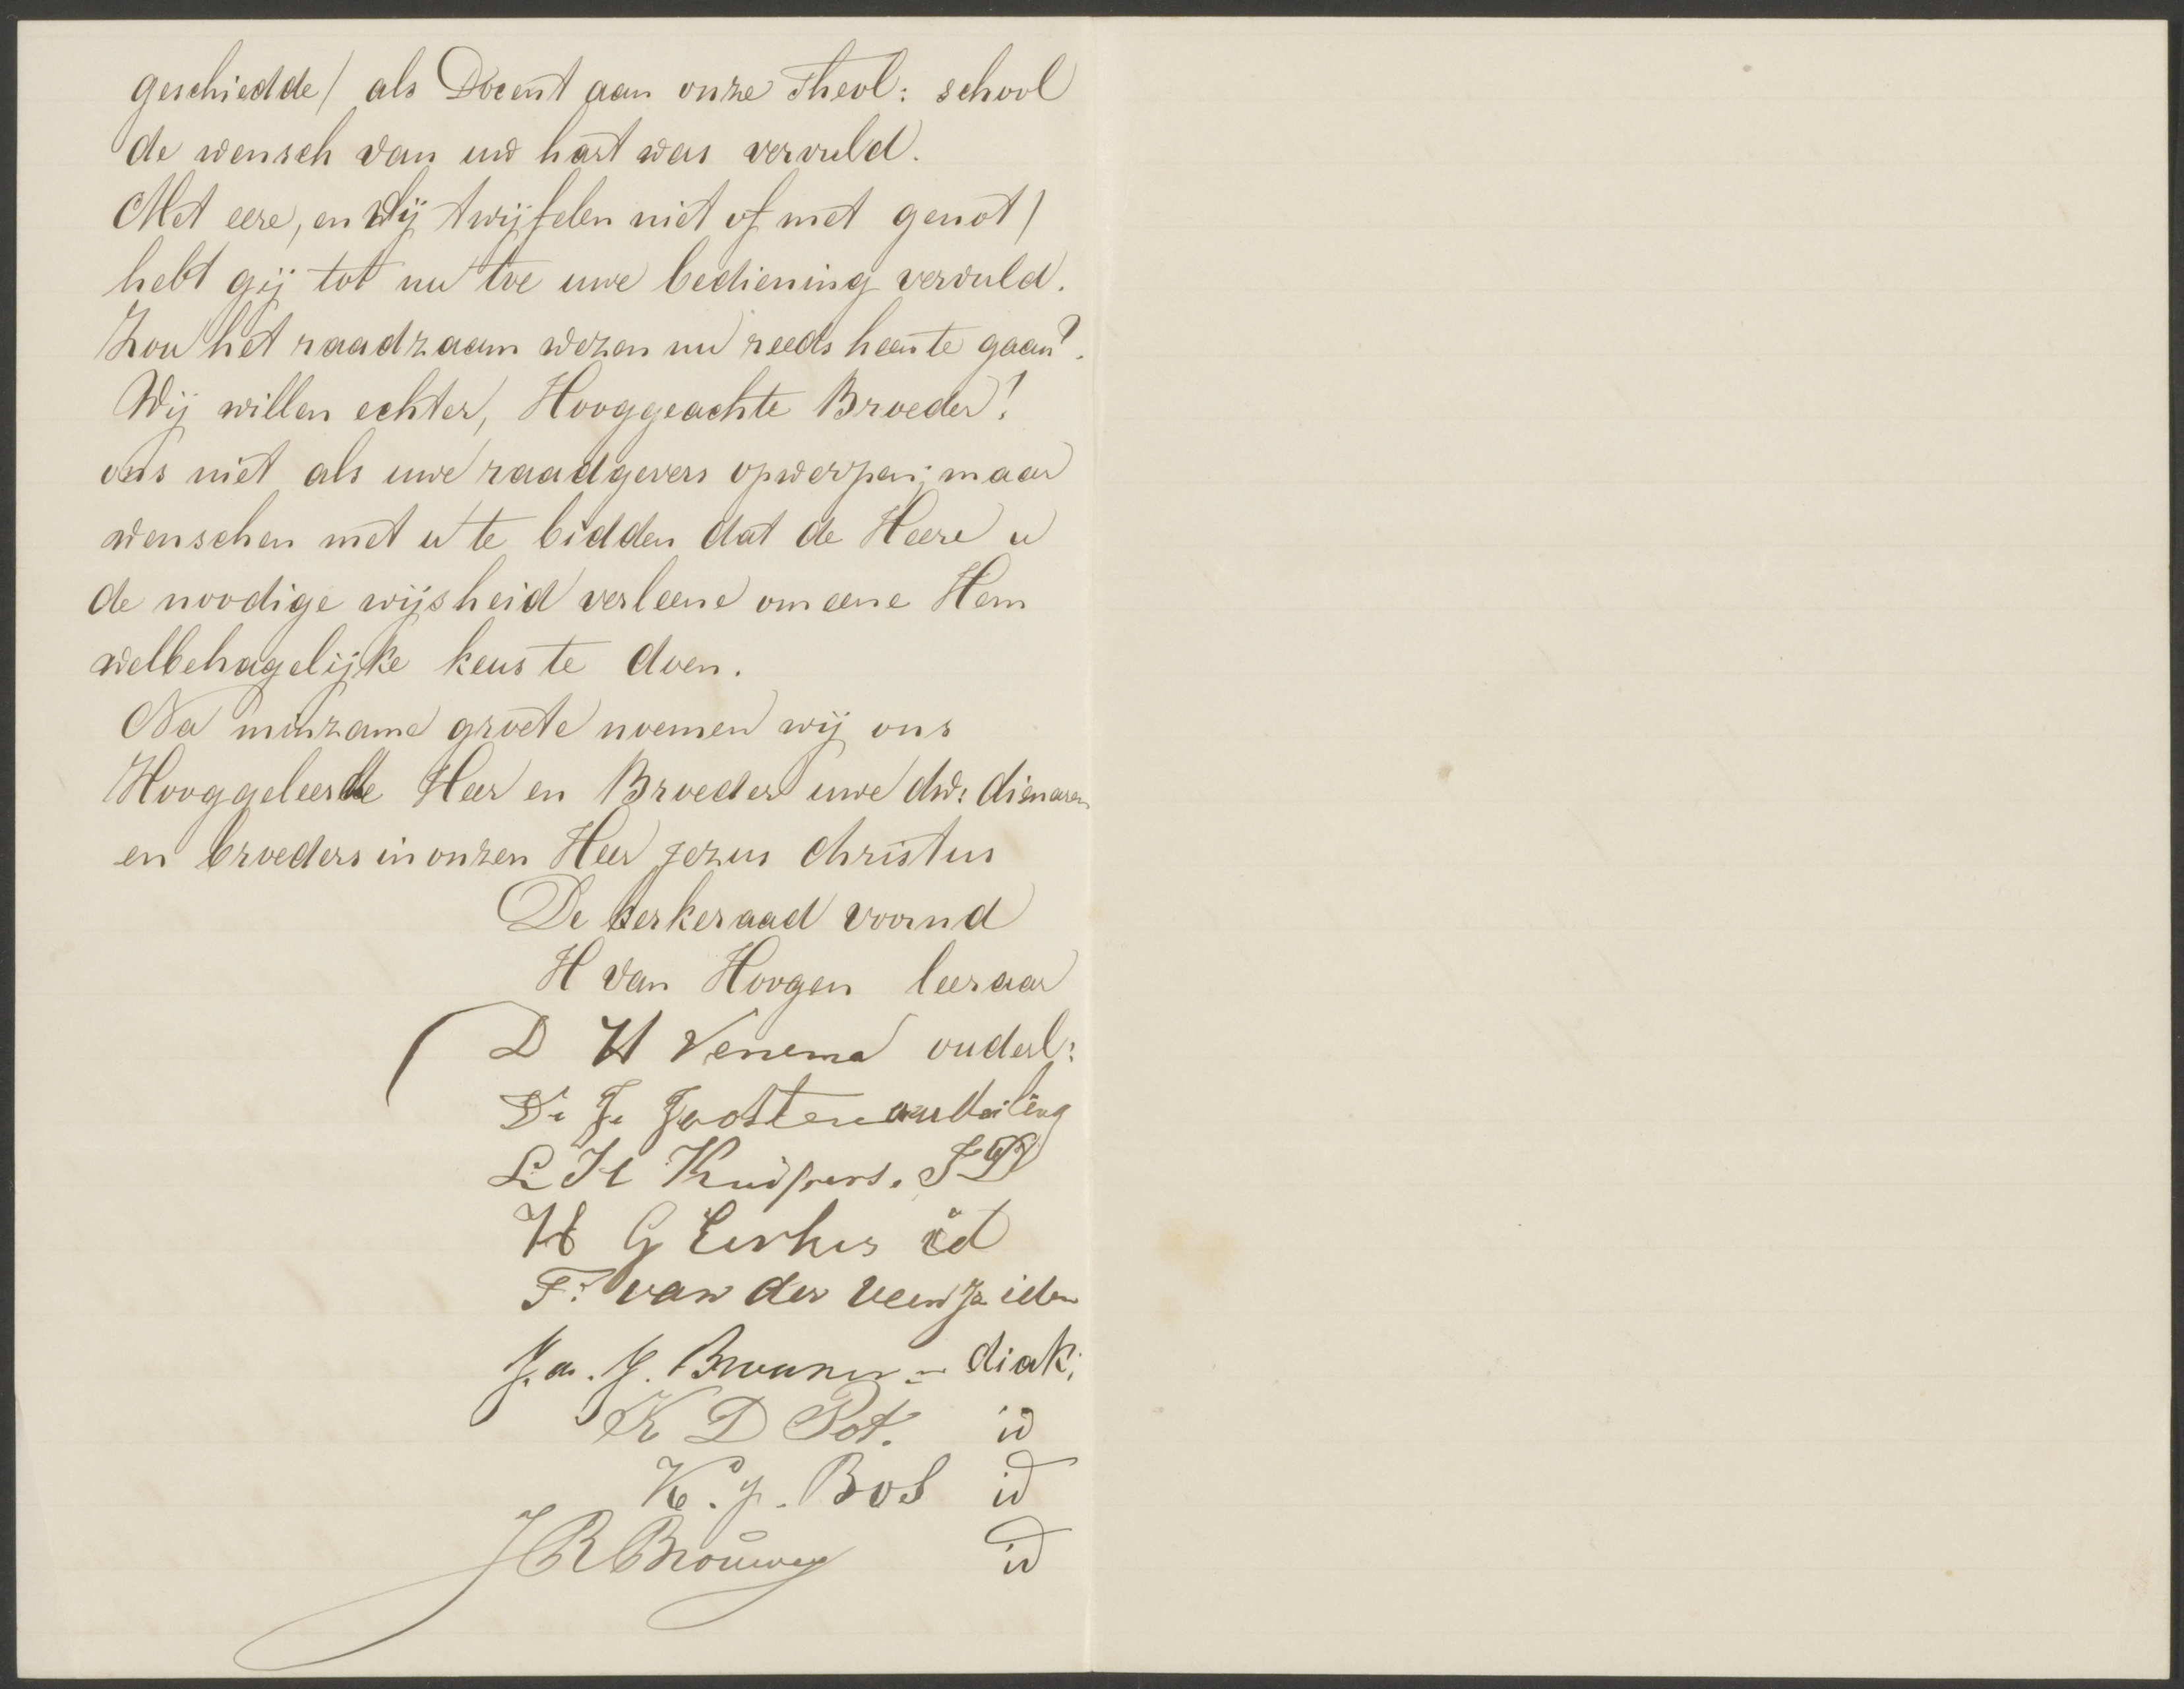 geschiedde / als Docent aan onze Theol: school
de wensch van uw hart was vervuld.
Met eere, en wij twijfelen niet of met genot /
hebt gij tot nu toe uwe bediening vervuld.
Zou het raadzaam wezen nu reeds heen te gaan?
Wij willen echter, Hooggeachte Broeder!
ons niet als uwe raadgevers opwerpen; maar
wenschen met u te bidden dat de Heere u
de noodige wijsheid verleene om eene Hem
welbehagelijke keus te doen.
Na minzame groete noemen wij ons
Hooggeleerde Heer en Broeder uwe dw: dienaren
en broeders in onzen Heer Jezus Christus
De kerkeraad voornd
H van Hoogen leeraar
D H Venema ouderl:
D. J. Joosten
L H Kuipers. ID
H G id
F. van der Veen Jz idem
Ja. J. Brouwer diak;
K D Pot. id
K. J. Bos id
J R Brouwer id